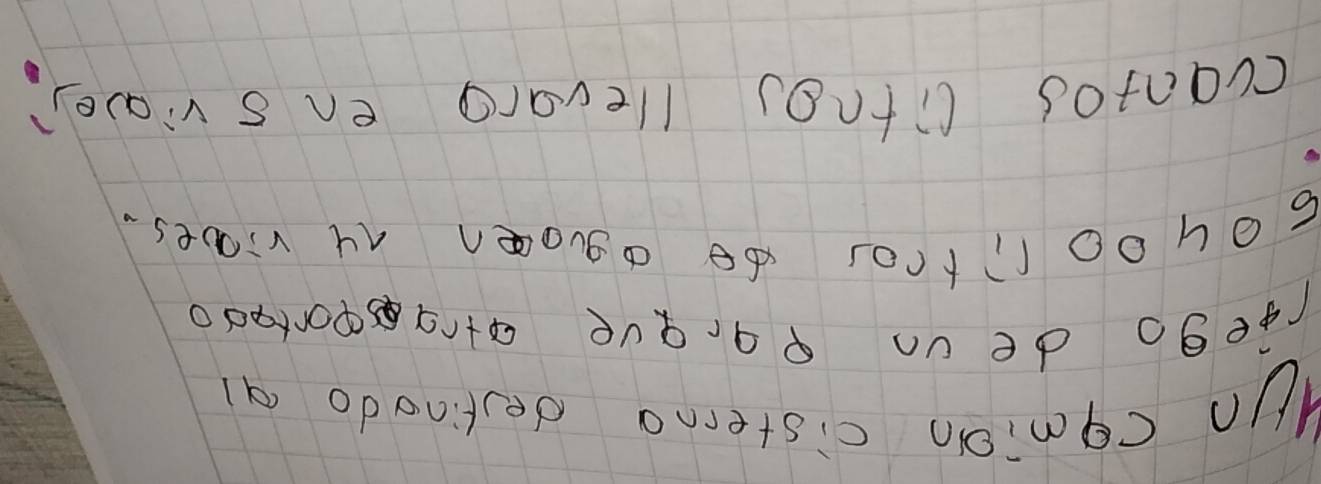 Un camion cisterna destinado al
riego de un parque a trasportado
50400 litros de aguaen 14 viajes.
cuantos litros llevara en 5 viajes?